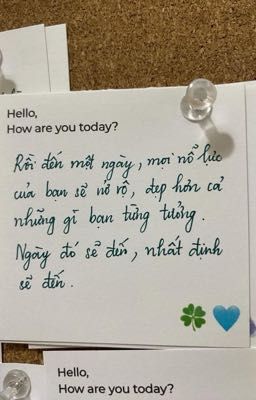 Hello,
How are you today?
Rồi đến một ngày, mọi nỗ lực
của bạn sẽ nở rộ, đẹp hơn cả
những gì bạn từng tưởng.
Ngày đó sẽ đến, nhất định
sẽ đến.
Hello,
How are you today?